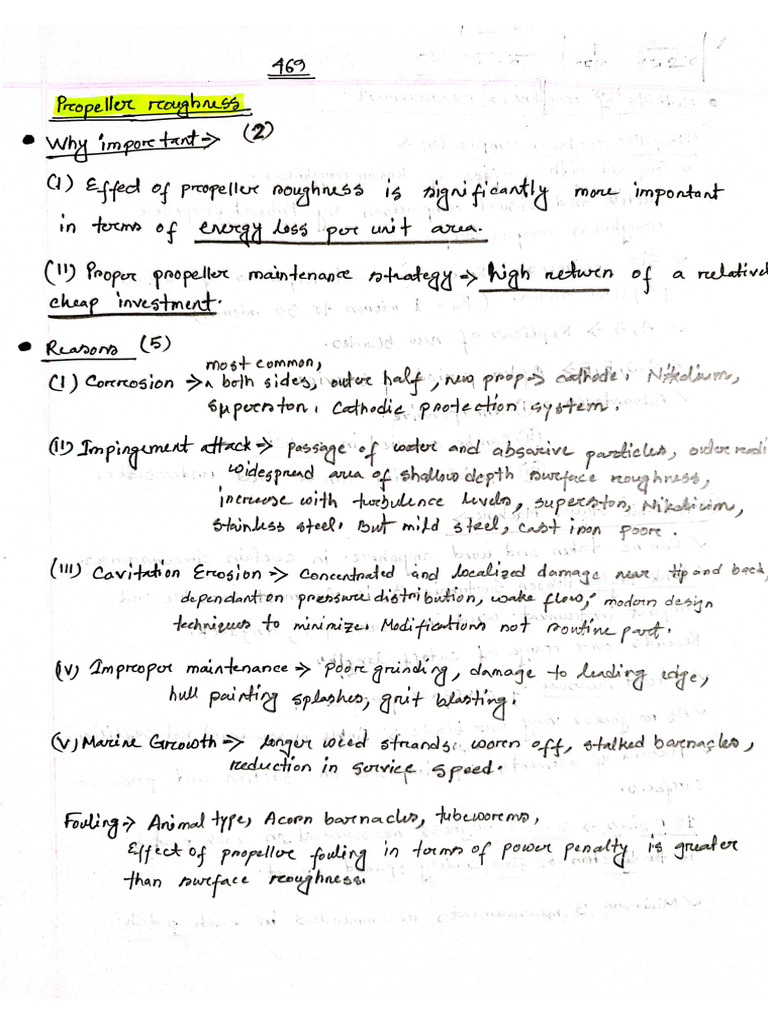 469
Propeller roughness
• Why important → (2)
(I) Effect of propeller roughness is significantly more important
in terms of energy loss per unit area.
(II) Proper propeller maintenance strategy → high return of a relative
cheap investment.
• Reasons (5)
most common,
(I) Corrosion → ^ both sides, outer half, new prop → cathode. Nikalium,
superston. Cathodic protection system.
(II) Impingement attack → passage of water and absarive particles, outer radii
widespread area of shallow depth surface roughness,
increase with turbulence levels, superston, Nikalium,
stainless steel. But mild steel, cast iron poor.
(III) Cavitation Erosion → Concentrated and localized damage near tip and back,
dependant on pressure distribution, wake flow, modern design
techniques to minimize. Modifications not routine part.
(IV) Improper maintenance → Poor grinding, damage to leading edge,
hull painting splashes, grit blasting.
(V) Marine Growth → longer weed strands worn off, stalked barnacles,
reduction in service speed.
Fouling → Animal type, Acorn barnacles, tubeworms,
Effect of propeller fouling in terms of power penalty is greater
than surface roughness.